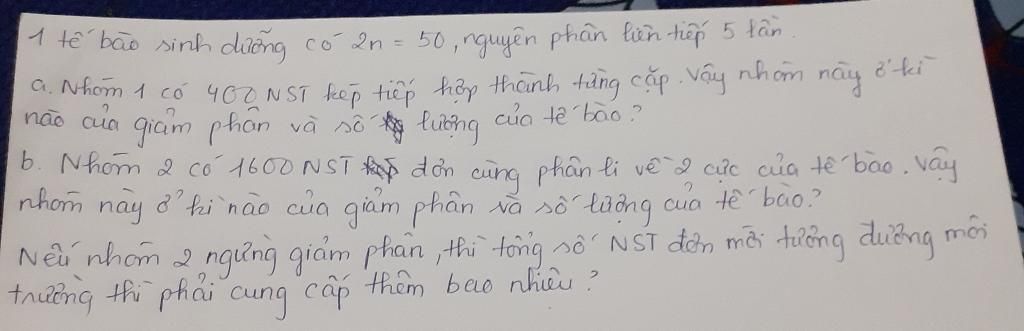 1 tế bào sinh dưỡng có 2n = 50, nguyên phân liên tiếp 5 lần.
a. Nhóm 1 có 400 NST kép tiếp hợp thành từng cặp. Vậy nhóm này ở kì
nào của giảm phân và số lượng của tế bào?
b. Nhóm 2 có 1600 NST đơn cùng phân li về 2 cực của tế bào. Vậy
nhóm này ở kì nào của giảm phân và số lượng của tế bào?
Nếu nhóm 2 ngừng giảm phân, thì tổng số NST đơn mới tương đương môi
trường thì phải cung cấp thêm bao nhiêu?